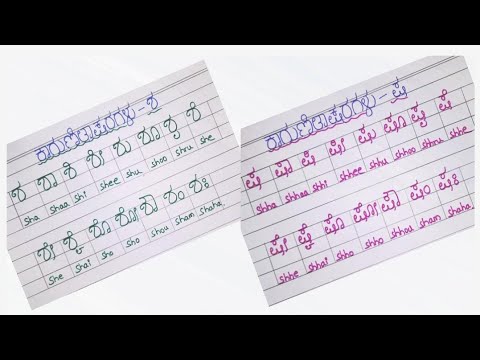 ಕಾಗುಣಿತಾಕ್ಷರಗಳು - ಶ
ಶ ಶಾ ಶಿ ಶೀ ಶು ಶೂ ಶೃ ಶೆ
sha shaa shi shee shu shoo shru she
ಶೇ ಶೈ ಶೊ ಶೋ ಶೌ ಶಂ ಶಃ
she shai sho sho shou sham shaha.
ಕಾಗುಣಿತಾಕ್ಷರಗಳು - ಷ
ಷ ಷಾ ಷಿ ಷೀ ಷು ಷೂ ಷೃ ಷೆ
shha shhaa shhi shhee shhu shhoo shhru shhe
ಷೇ ಷೈ ಷೊ ಷೋ ಷೌ ಷಂ ಷಃ
shhe shhai shho shho shhou sham shaha.